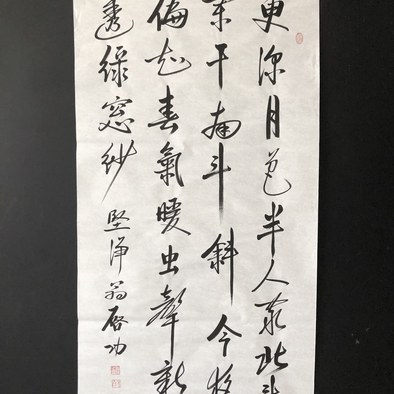 更深月色半人家北斗
闌干南斗斜今夜
偏知春氣暖虫聲新
透綠窓紗 堅淨翁啓功